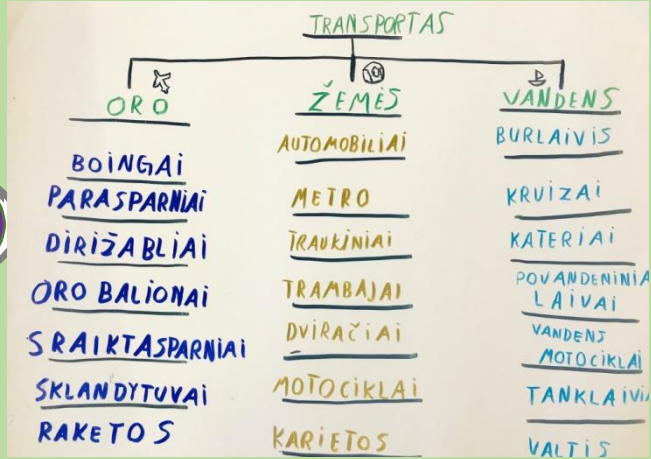 TRANSPORTAS
ORO
BOINGAI
PARASPARNIAI
DIRIŽABLIAI
ORO BALIONAI
SRAIKTASPARNIAI
SKLANDYTUVAI
RAKETOS
ŽEMĖS
AUTOMOBILIAI
METRO
TRAUKINIAI
TRAMBAJAI
DVIRAČIAI
MOTOCIKLAI
KARIETOS
VANDENS
BURLAIVIS
KRUIZAI
KATERIAI
POVANDENINIA
LAIVAI
VANDENS
MOTOCIKLAI
TANKLAIVIA
VALTIS